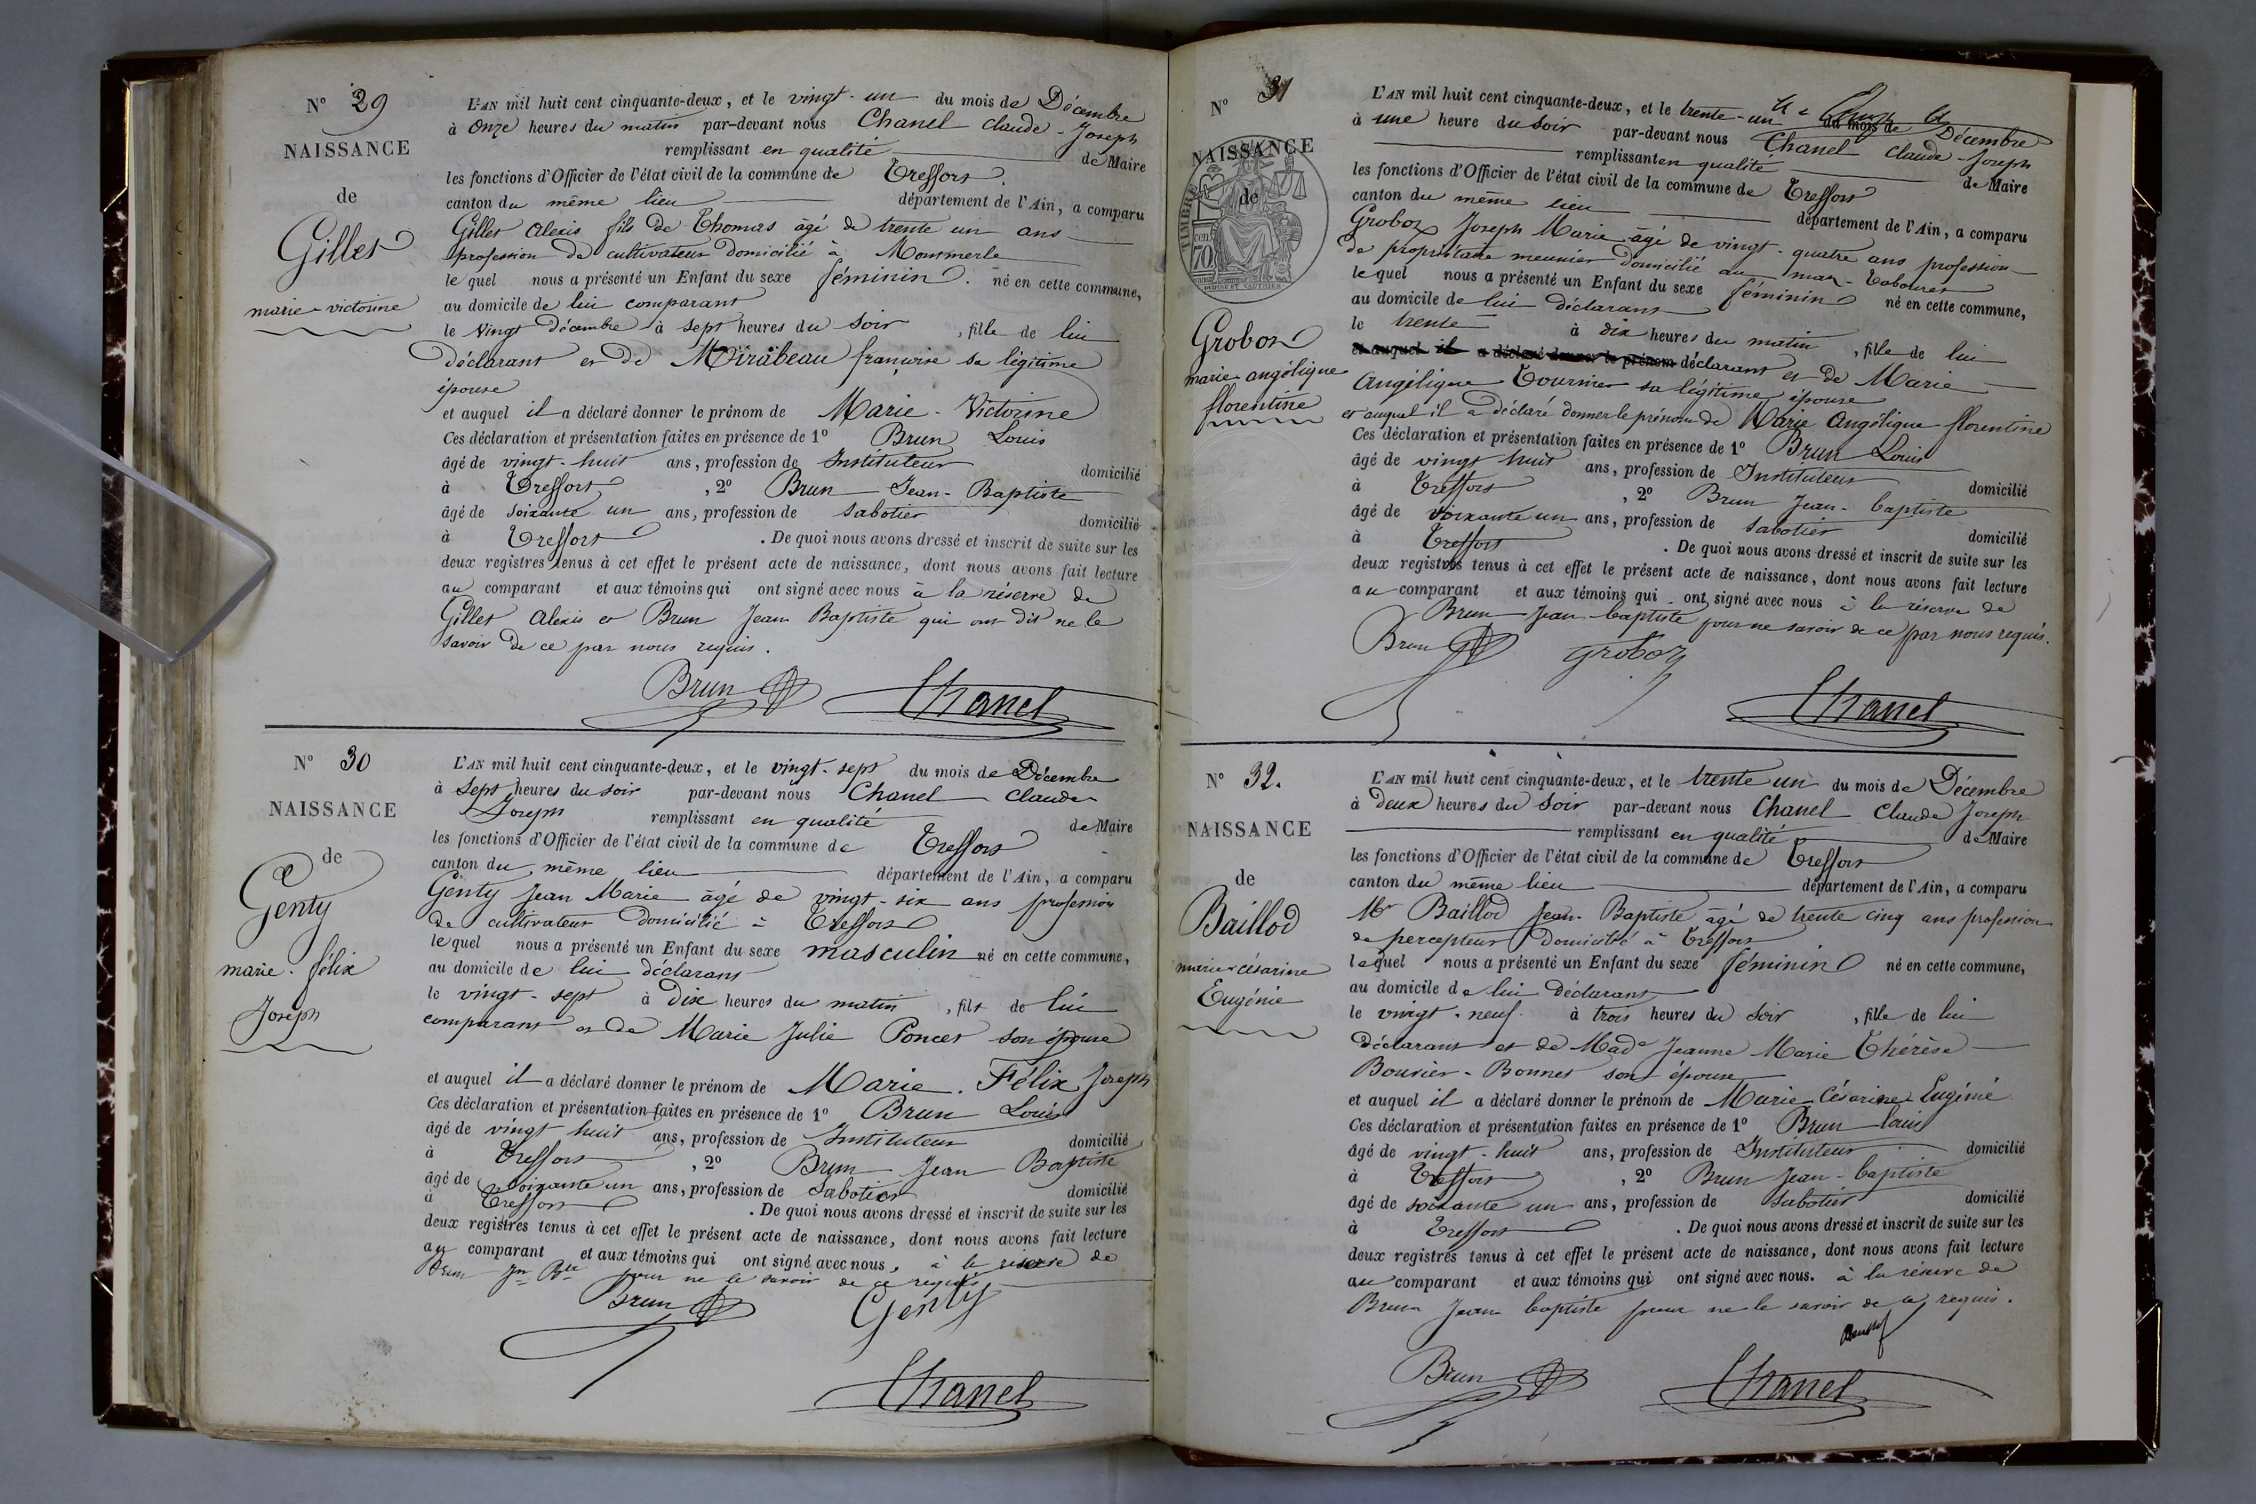 N° 29
NAISSANCE
de
Gillet
marie-victorine
L'AN mil huit cent cinquante-deux, et le vingt-un du mois de Décembre
à onze heures du matin par-devant nous Chanel claude-Joseph
remplissant en qualité de Maire
les fonctions d'Officier de l'état civil de la commune de Treffort.
canton du même lieu département de l'Ain, a comparu
Gillet Alexis fils de Thomas âgé de trente un ans
profession de cultivateur domicilié à Montmerle
lequel nous a présenté un Enfant du sexe féminin. né en cette commune,
au domicile de lui comparant
le vingt Décembre à sept heures du soir, fille de lui
déclarant et de Mirabeau françoise sa légitime
épouse
et auquel il a déclaré donner le prénom de Marie-Victorine
Ces déclaration et présentation faites en présence de 1° Brun Louis
âgé de vingt-huit ans, profession de Instituteur domicilié
à Treffort, 2° Brun Jean-Baptiste
âgé de soixante un ans, profession de sabotier domicilié
à Treffort. De quoi nous avons dressé et inscrit de suite sur les
deux registres tenus à cet effet le présent acte de naissance, dont nous avons fait lecture
au comparant et aux témoins qui ont signé avec nous à la réserve de
Gillet Alexis et Brun Jean Baptiste qui ont dit ne le
savoir de ce par nous requis.
Brun Chanel
N° 30
NAISSANCE
de
Genty
marie-félix
Joseph
L'AN mil huit cent cinquante-deux, et le vingt-sept du mois de Décembre
à sept heures du soir par-devant nous Chanel claude
Joseph remplissant en qualité de Maire
les fonctions d'Officier de l'état civil de la commune de Treffort
canton du même lieu département de l'Ain, a comparu
Genty Jean Marie âgé de vingt-six ans profession
de cultivateur domicilié à Treffort
lequel nous a présenté un Enfant du sexe masculin né en cette commune,
au domicile de lui déclarant
le vingt-sept à dix heures du matin, fils de lui
comparant et de Marie Julie Poncet son épouse
et auquel il a déclaré donner le prénom de Marie. Félix Joseph
Ces déclaration et présentation faites en présence de 1° Brun Louis
âgé de vingt huit ans, profession de Instituteur domicilié
à Treffort, 2° Brun Jean Baptiste
âgé de soixante un ans, profession de sabotier domicilié
à Treffort. De quoi nous avons dressé et inscrit de suite sur les
deux registres tenus à cet effet le présent acte de naissance, dont nous avons fait lecture
au comparant et aux témoins qui ont signé avec nous, à la réserve de
Brun Jn Bte pour ne le savoir de ce requis
Brun Genty
Chanel
N° 31
NAISSANCE
de
TIMBRE
70
Grobon
marie angélique
florentine
L'AN mil huit cent cinquante-deux, et le trente-un du mois de Décembre
à une heure du soir par-devant nous Chanel claude-Joseph
remplissant en qualité de Maire
les fonctions d'Officier de l'état civil de la commune de Treffort
canton du même lieu département de l'Ain, a comparu
Grobon Joseph Marie âgé de vingt-quatre ans profession
de propriétaire meunier domicilié au
lequel nous a présenté un Enfant du sexe féminin né en cette commune,
au domicile de lui déclarant
le trente à dix heures du matin, fille de lui
et auquel il a déclaré donner le prénom déclarant et de Marie
Angélique Tournier sa légitime épouse
et auquel il a déclaré donner le prénom de Marie Angélique florentine
Ces déclaration et présentation faites en présence de 1° Brun Louis
âgé de vingt huit ans, profession de Instituteur domicilié
à Treffort, 2° Brun Jean-baptiste
âgé de soixante un ans, profession de sabotier domicilié
à Treffort. De quoi nous avons dressé et inscrit de suite sur les
deux registres tenus à cet effet le présent acte de naissance, dont nous avons fait lecture
au comparant et aux témoins qui ont signé avec nous à la réserve de
Brun Jean-baptiste pour ne savoir de ce par nous requis.
Brun Grobon
Chanel
N° 32.
NAISSANCE
de
Baillod
marie-césarine
Eugénie
L'AN mil huit cent cinquante-deux, et le trente un du mois de Décembre
à deux heures du soir par-devant nous Chanel Claude Joseph
remplissant en qualité de Maire
les fonctions d'Officier de l'état civil de la commune de Treffort
canton du même lieu département de l'Ain, a comparu
Mr Baillod Jean-Baptiste âgé de trente cinq ans profession
de percepteur domicilié à Treffort
lequel nous a présenté un Enfant du sexe féminin né en cette commune,
au domicile de lui déclarant
le vingt-neuf à trois heures du soir, fille de lui
déclarant et de Made Jeanne Marie Thérèse
Bouvier-Bonnet son épouse
et auquel il a déclaré donner le prénom de Marie Césarine Eugénie
Ces déclaration et présentation faites en présence de 1° Brun Louis
âgé de vingt-huit ans, profession de Instituteur domicilié
à Treffort, 2° Brun Jean-baptiste
âgé de soixante un ans, profession de sabotier domicilié
à Treffort. De quoi nous avons dressé et inscrit de suite sur les
deux registres tenus à cet effet le présent acte de naissance, dont nous avons fait lecture
au comparant et aux témoins qui ont signé avec nous. à la réserve de
Brun Jean baptiste pour ne le savoir de ce requis.
Brun Chanel